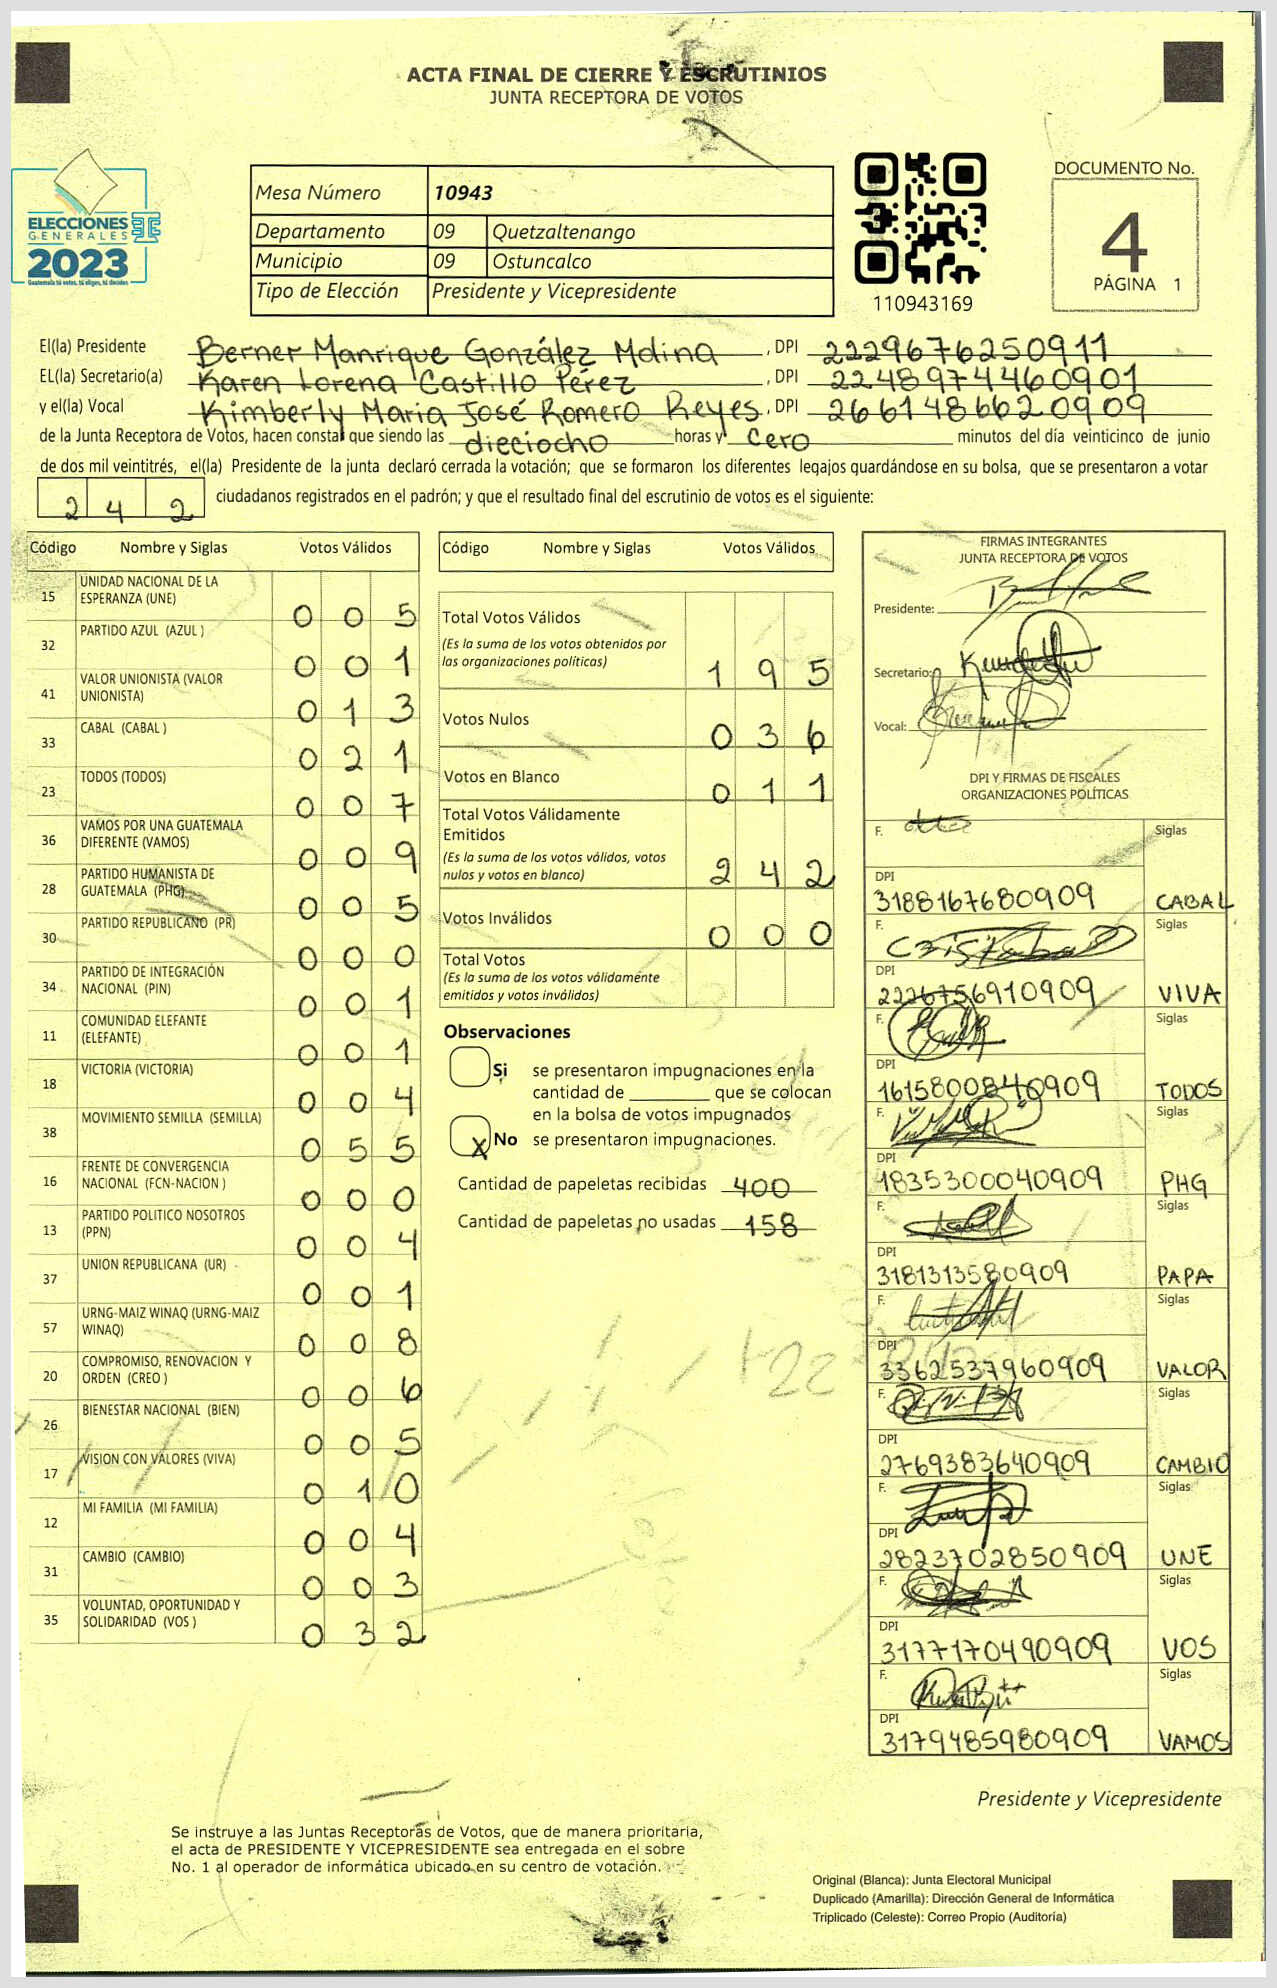 ACTA FINAL DE CIERRE Y ESCRUTINIOS
JUNTA RECEPTORA DE VOTOS
ELECCIONES
GENERALES
2023
Guatemala tú votas, tú eliges, tú decides
Mesa Número 10943
Departamento 09 Quetzaltenango
Municipio 09 Ostuncalco
Tipo de Elección Presidente y Vicepresidente
110943169
DOCUMENTO No.
4
PÁGINA 1
El(la) Presidente Berner Manrique González Molina, DPI 2229676250911
EL(la) Secretario(a) Karen Lorena Castillo Pérez, DPI 2248974460901
y el(la) Vocal Kimberly Maria José Romero Reyes, DPI 2661486620909
de la Junta Receptora de Votos, hacen constar que siendo las dieciocho horas y cero minutos del día veinticinco de junio
de dos mil veintitrés, el(la) Presidente de la junta declaró cerrada la votación; que se formaron los diferentes legajos guardándose en su bolsa, que se presentaron a votar
242 ciudadanos registrados en el padrón; y que el resultado final del escrutinio de votos es el siguiente:
Código Nombre y Siglas Votos Válidos
15 UNIDAD NACIONAL DE LA ESPERANZA (UNE) 005
32 PARTIDO AZUL (AZUL ) 001
41 VALOR UNIONISTA (VALOR UNIONISTA) 013
33 CABAL (CABAL ) 021
23 TODOS (TODOS) 007
36 VAMOS POR UNA GUATEMALA DIFERENTE (VAMOS) 009
28 PARTIDO HUMANISTA DE GUATEMALA (PHG) 005
30 PARTIDO REPUBLICANO (PR) 000
34 PARTIDO DE INTEGRACIÓN NACIONAL (PIN) 001
11 COMUNIDAD ELEFANTE (ELEFANTE) 001
18 VICTORIA (VICTORIA) 004
38 MOVIMIENTO SEMILLA (SEMILLA) 055
16 FRENTE DE CONVERGENCIA NACIONAL (FCN-NACION ) 000
13 PARTIDO POLITICO NOSOTROS (PPN) 004
37 UNION REPUBLICANA (UR) 001
57 URNG-MAIZ WINAQ (URNG-MAIZ WINAQ) 008
20 COMPROMISO, RENOVACION Y ORDEN (CREO ) 006
26 BIENESTAR NACIONAL (BIEN) 005
17 VISION CON VALORES (VIVA) 010
12 MI FAMILIA (MI FAMILIA) 004
31 CAMBIO (CAMBIO) 003
35 VOLUNTAD, OPORTUNIDAD Y SOLIDARIDAD (VOS ) 032
Código Nombre y Siglas Votos Válidos
Total Votos Válidos 195
(Es la suma de los votos obtenidos por
las organizaciones políticas)
Votos Nulos 036
Votos en Blanco 011
Total Votos Válidamente
Emitidos 242
(Es la suma de los votos válidos, votos
nulos y votos en blanco)
Votos Inválidos 000
Total Votos
(Es la suma de los votos válidamente
emitidos y votos inválidos)
Observaciones
Si se presentaron impugnaciones en la
cantidad de ________ que se colocan
en la bolsa de votos impugnados
X No se presentaron impugnaciones.
Cantidad de papeletas recibidas 400
Cantidad de papeletas no usadas 158
FIRMAS INTEGRANTES
JUNTA RECEPTORA DE VOTOS
Presidente:
Secretario:
Vocal:
DPI Y FIRMAS DE FISCALES
ORGANIZACIONES POLÍTICAS
F. Siglas
DPI
3188167680909 CABAL
F. Siglas
DPI
2226756910909 VIVA
F. Siglas
DPI
1615800840909 TODOS
F. Siglas
DPI
1835300040909 PHG
F. Siglas
DPI
3181313580909 PAPA
F. Siglas
DPI
3362537960909 VALOR
F. Siglas
DPI
2769383640909 CAMBIO
F. Siglas
DPI
2823702850909 UNE
F. Siglas
DPI
3177170490909 VOS
F. Siglas
DPI
3179485980909 VAMOS
Presidente y Vicepresidente
Se instruye a las Juntas Receptoras de Votos, que de manera prioritaria,
el acta de PRESIDENTE Y VICEPRESIDENTE sea entregada en el sobre
No. 1 al operador de informática ubicado en su centro de votación.
Original (Blanca): Junta Electoral Municipal
Duplicado (Amarilla): Dirección General de Informática
Triplicado (Celeste): Correo Propio (Auditoría)